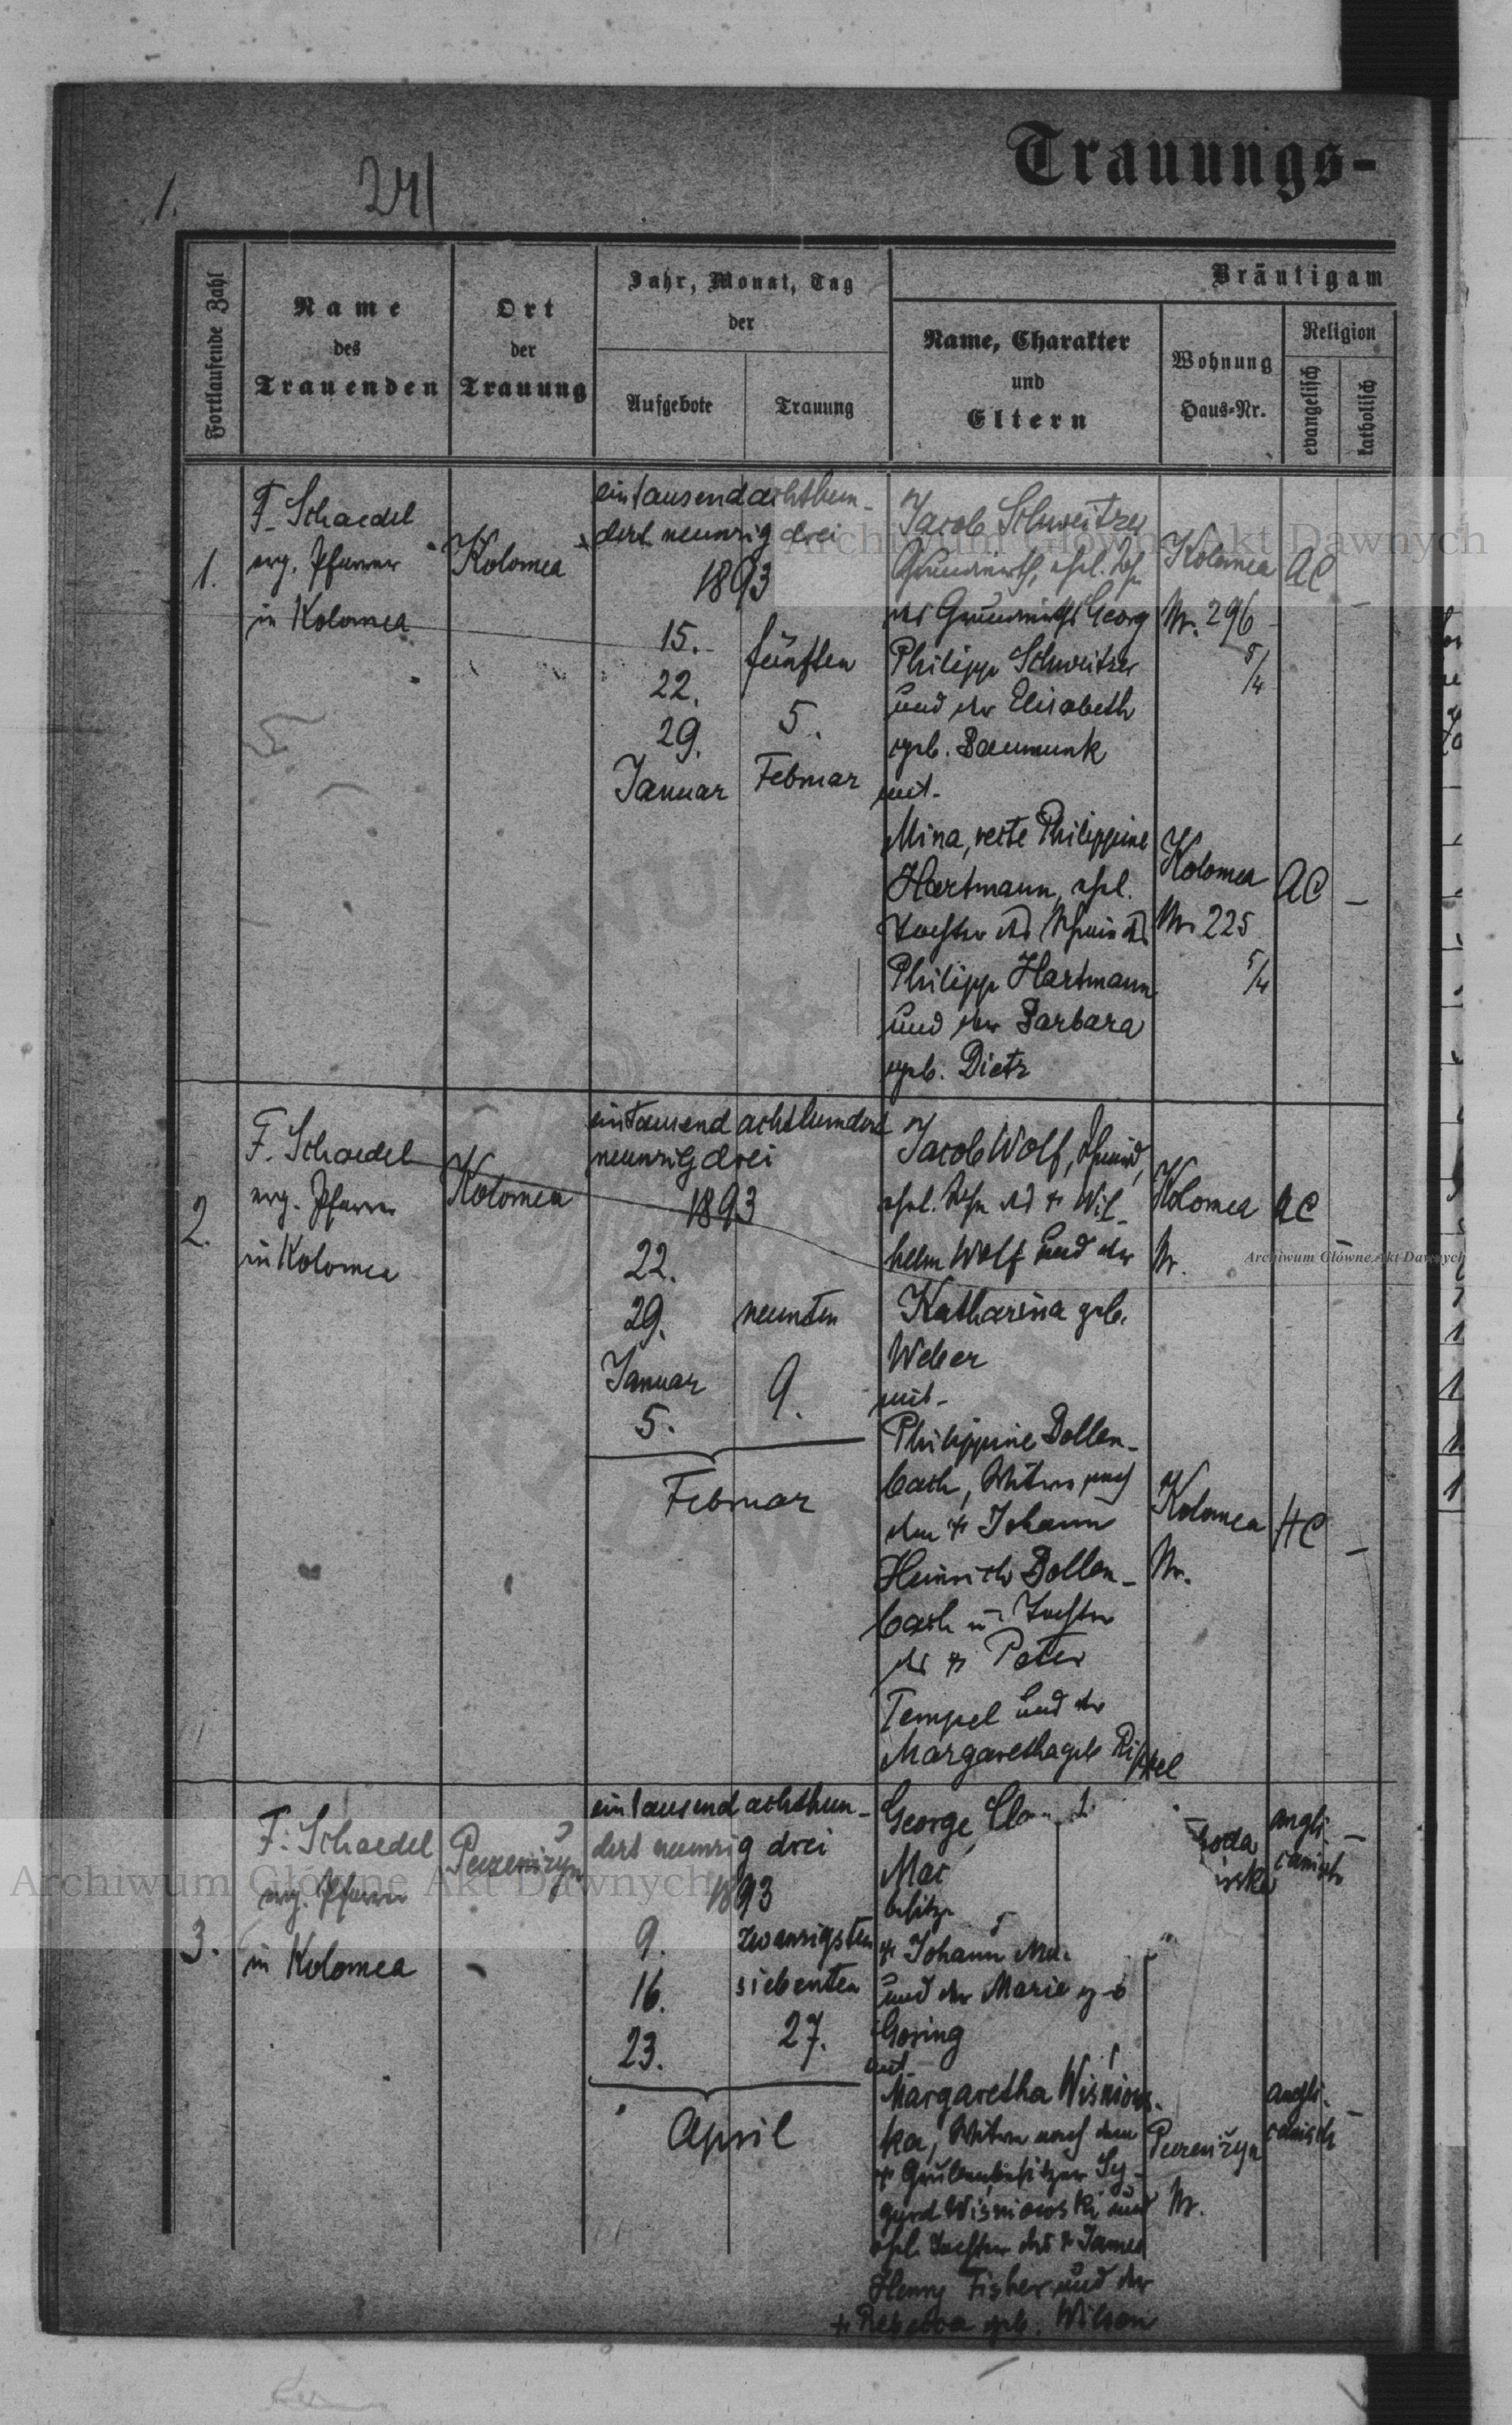 Trauungs-
1.
241
Fortlaufende Zahl
Name
des
Trauenden
Ort
der
Trauung
Jahr, Monat, Tag
der
Aufgebote
Trauung
Bräutigam
Name, Charakter
und
Eltern
Wohnung
Haus-Nr.
Religion
evangelisch
katholisch
1.
F. Schaedel
evg. Pfarrer
in Kolomea
Kolomea
eintausendachthun-
dert neunzig drei
1893
15.
22.
29.
Januar
fünften
5.
Februar
Jacob Schweitzer
Grundwirth, ehel. Sohn
des Grundwirths Georg
Philipp Schweitzer
und der Elisabeth
geb. Baumunk
mit
Kolomea
Nr. 296
5/4
AC
–
Mina, recte Philippine
Hartmann, ehel.
Tochter des Schmieds
Philipp Hartmann
und der Barbara
geb. Dietz
Kolomea
Nr 225
5/4
AC
–
2.
F. Schaedel
evg. Pfarrer
in Kolomea
Kolomea
eintausend achthundert
neunzig drei
1893
22.
29.
Januar
5.
neunten
9.
Februar
Jacob Wolf, Schmied,
ehel. Sohn des + Wil-
helm Wolf und der
Katharina geb.
Weber
mit
Kolomea
Nr.
AC
–
Philippine Dollen-
bach, Witwe nach
dem + Johann
Heinrich Dollen-
bach u. Tochter
des + Peter
Tempel und der
Margaretha geb. Rippel
Kolomea
Nr.
HC
–
3.
F. Schaedel
evg. Pfarrer
in Kolomea
Peczeniżyn
eintausend achthun-
dert neunzig drei
1893
9.
16.
23.
zwanzigsten
siebenten
27.
April
George
Mac
besitzer
+ Johann Mac
und der Marie geb
Gosing
mit
angli-
canisch
–
Margaretha Wisniows-
ka, Witwe nach dem
+ Grubenbesitzer Sy-
gurd Wisniowski und
ehel. Tochter des + James
Henry Fisher und der
+ Rebecca geb. Wilson
Peczeniżyn
Nr.
angli-
canisch
–
Archiwum Główne Akt Dawnych
Archiwum Główne Akt Dawnych
Archiwum Główne Akt Dawnych